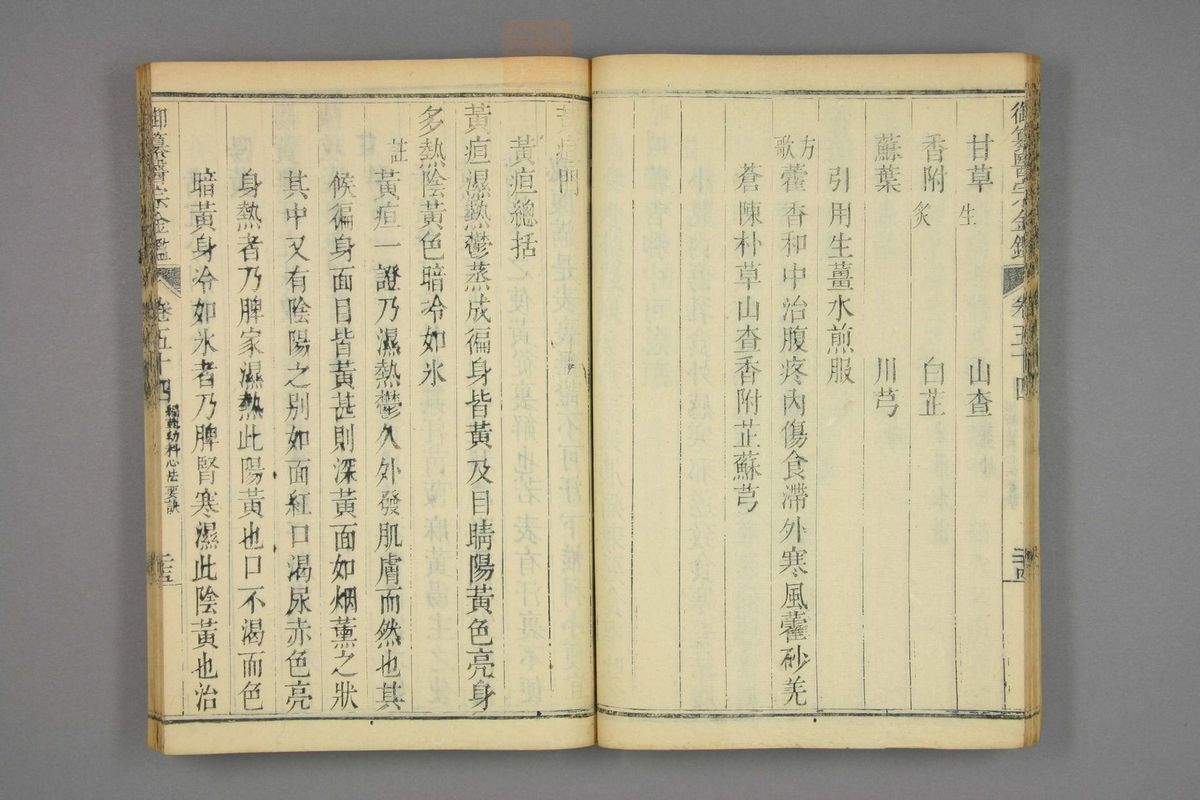 御纂醫宗金鑑 卷五十四 三十四
甘草 生 山查
香附 炙 白芷
蘇葉 川芎
引用生薑水煎服
方歌 藿香和中治腹疼內傷食滯外寒風藿砂羌
蒼陳朴草山查香附芷蘇芎
黃疸門
黃疸總括
黃疸濕熱鬱蒸成徧身皆黃及目睛陽黃色亮身
多熱陰黃色暗冷如氷
註 黃疸一證乃濕熱鬱久外發肌膚而然也其
候徧身面目皆黃甚則深黃面如烟薰之狀
其中又有陰陽之別如面紅口渴尿赤色亮
身熱者乃脾家濕熱此陽黃也口不渴而色
暗黃身冷如氷者乃脾腎寒濕此陰黃也治
御纂醫宗金鑑 卷五十四 編輯幼科心法要訣 三十五